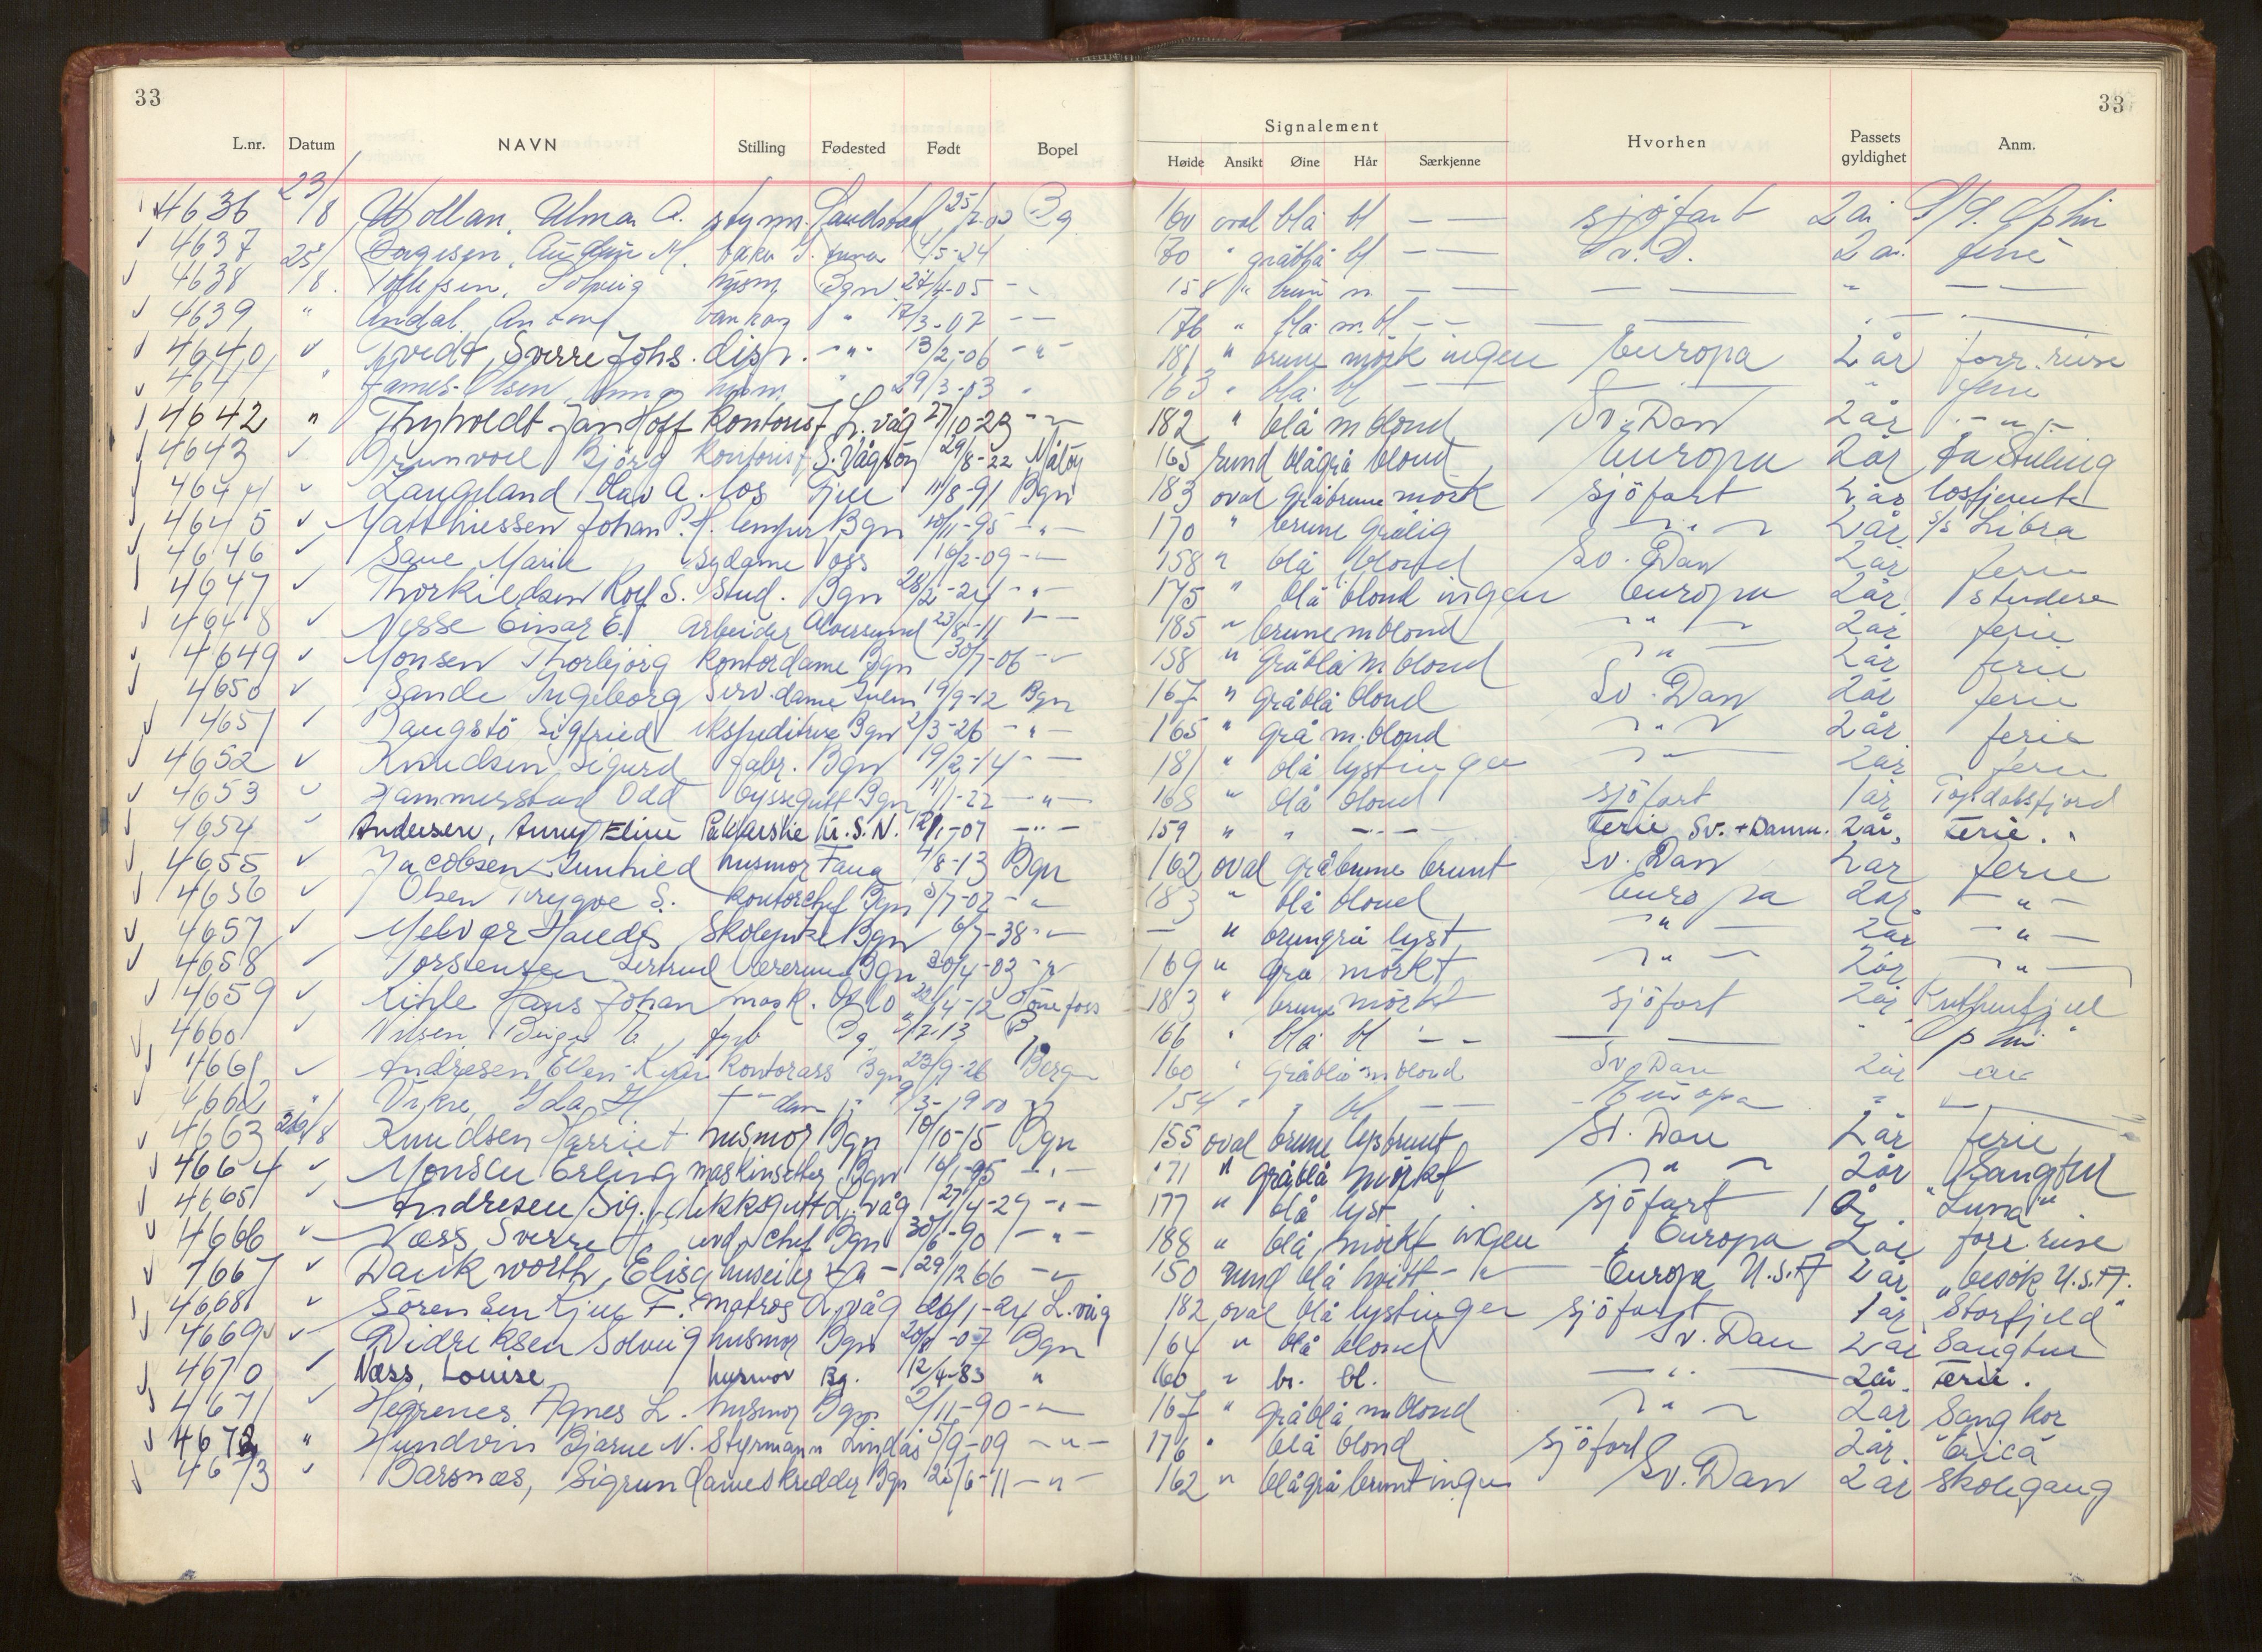 33
33
L.nr. Datum NAVN Stilling Fødested Født Bopel
Signalement
Høide Ansikt Øine Hår Særkjenne Hvorhen Passets gyldighet Anm.
4636 23/8 Wollan, Ulman A. styrm. 25/2-02 Bg 160 oval blå bl — — sjøfart 2 år
4637 25/8 M. 4/5-24 " gråblå bl — — Sv. D. 2 år. ferie
4638 Tollefsen, Solveig husm. Bgn 27/4-05 -"- 158 " brun m. — — — — " — —
4639 " Andal, 17/3-07 — — 176 " blå m.bl — —
4640 " Tvedt, Sverre Johs. disp. -"- 13/2-06 -"- 181 " brune mörk ingen Europa 2 år forr.reise
4641 " James-Olsen, husm " 29/3-03 " 163 " blå bl — — " ferie
4642 " Thyholdt Jan Hoff Kontorist L.våg 27/10-23 -"- 182 " blå m blond Sv. Dan 2 år -"-
4643 " Grunvoll Bjørg Kontorist S.Vågsöy 29/8-22 Målöy 165 rund blågrå blond Europa 2 år
4644 " Langeland Olav A. los Fjell 11/8-91 Bgn 183 oval gråbrune mørk sjöfart 2 år lostjeneste
4645 " Matthiessen Johan P.H. Bgn 10/11-95 -"- 170 " brune grålig -"- 2 år s/s Libra
4646 " Saue Marie sydame Voss 16/2-09 -"- 158 " blå blond Sv. Dan 2 år ferie
4647 " Thorkildsen Rolf S. Stud. Bgn 28/2-24 -"- 175 " blå blond ingen Europa 2 år studere
4648 " Nesse Einar E. Arbeider Alversund 23/8-11 -"- 185 " brune m blond -"- 2 år ferie
4649 " Monsen Thorbjørg Kontordame Bgn 30/7-06 -"- 158 " gråblå m blond -"- 2 år ferie
4650 " Sande Ingeborg Serv.dame 19/9-12 Bgn 167 " gråblå blond Sv. Dan 2 år ferie
4651 " Baugstö Sigfried Ekspeditrise Bgn 2/3-26 -"- 165 " grå m.blond -"- 2 år ferie
4652 " Knudsen Sigurd fabr. Bgn 19/2-14 -"- 181 " blå lyst ingen -"- 2 år ferie
4653 " Hammerstad Odd byssegutt Bgn 11/1-22 -"- 168 " blå blond sjöfart 1 år Topdalsfjord
4654 " Andersen, Anny Eline 12/1-07 -"- 159 " " -"- Ferie Sv. + Danm. 2 år. Ferie.
4655 " Jacobsen Gunhild husmor Fana 4/8-13 Bgn 162 oval gråbrune brunt Sv. Dan 2 år ferie
4656 " Olsen Trygve S. Kontorchef Bgn 5/7-02 -"- 183 " blå blond Europa 2 år -"-
4657 " Melvær Haldis Skolepike Bgn 6/7-38 -"- — " brungrå lyst -"- 2 år -"-
4658 " Torstensen Gertrud Lærerinne Bgn 30/4-03 -"- 169 " grå mörkt -"- 2 år -"-
4659 " Kihle Hans Johan mask. Oslo 22/4-12 Hönefoss 183 " brune mörkt sjöfart 2 år
4660 " Nilsen, Birger fyrb Bg. 2/2-13 B 166 " blå bl — — — "
4661 " Andresen Ellen-Karin Kontorass Bgn 23/9-26 Berg 160 " gråblå m blond Sv. Dan 2 år
4662 " Vikre, Ida H 9/3-1900 154 " " bl — — Europa "
4663 26/8 Knudsen Harriet husmor Bgn 10/10-15 Bgn 155 oval brune lysbrunt Sv. Dan 2 år ferie
4664 " Monsen Erling maskinsetter Bgn 16/1-95 -"- 171 " gråblå mörkt -"- 2 år Sangtur
4665 " Andresen Sig. dekksgutt L.våg 27/4-29 -"- 177 " blå lyst sjöfart 1 år "Luna"
4666 " Næss Sverre chef Bgn 30/6-90 -"- 188 " blå mörkt ingen Europa 2 år forr.reise
4667 " Dankworth, Elisa 29/12 66 -"- 150 rund blå hvitt -"- Europa U.S.A 2 år besök U.S.A.
4668 " Sörensen F. matros L.våg 26/1-24 L.våg 182 oval blå lyst ingen sjöfart 1 år "Storfjeld"
4669 " Didriksen Solveig husmor Bgn 20/8-07 Bgn 164 " blå blond Sv. Dan 2 år Sangtur
4670 " Næss, Louise husmor Bg. 12/4-83 " 160 " br. bl. — " — 2 år. Ferie.
4671 " Hegrenes, Agnes L. husmor Bgn 2/11-90 -"- 167 " gråblå m blond -"- 2 år Sang kor
4672 " Hundvin Bjarne N. Styrmann Lindås 5/9-09 -"- 176 " blå blond sjöfart 2 år "Erica"
4673 " Barsnæs, Sigrun dameskredder Bgn 20/6-11 -"- 162 " blågrå brunt ingen Sv. Dan 2 år skolegang